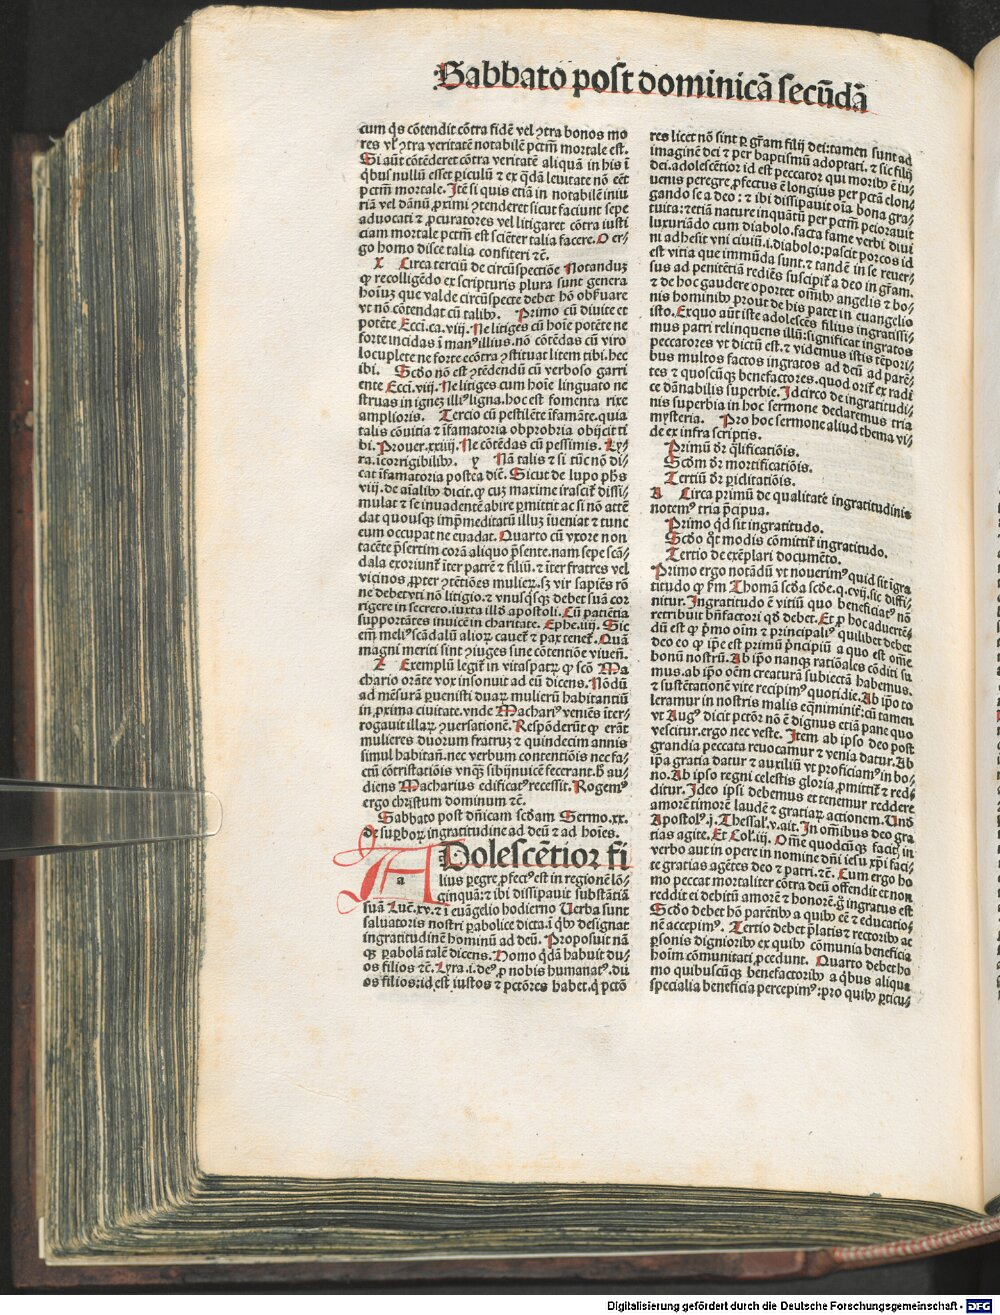 Sabbato post dominicā secūdā
cum q̄s cōtendit cōtra fidē vel ꝯtra bonos mo
res vl' ꝯtra veritatē notabilē pctm̄ mortale est.
Si aūt cōtēderet cōtra veritatē aliquā in his ī
qͥbus nullū esset ꝑiculū ⁊ ex qͣdā leuitate nō eēt
pctm̄ mortale. Itē si quis etiā in notabilē iniu
riā vel dānū ꝓximi ꝯtenderet sicut faciunt sepe
aduocati ⁊ ꝓcuratores vel litigaret cōtra iusti
ciam mortale pctm̄ est sciēter talia facere. O er⸗
go homo disce talia confiteri ⁊c̄.
X Circa terciū de circūspectiōe Notanduꝫ
ꝙ recolligēdo ex scripturis plura sunt genera
hoīuꝫ que valde circūspecte debet hō obẜuare
vt nō cōtendat cū talibꝫ. Primo cū diuite et
potēte Ecci.ca.viij. Ne litiges cū hoīe potēte ne
forte incidas ī manꝰ illius. nō cōtēdas cū viro
locuplete ne forte ecōtra ꝯstituat litem tibi. hec
ibi. Scḋo nō est ꝯtēdendū cū verboso garri
ente Ecci.viij. Ne litiges cum hoīe linguato ne
struas in igneꝫ illiꝰ ligna. hoc est fomenta rixe
amplioris. Tercio cū pestilēte īfamāte. quia
talis cōuitia ⁊ īfamatoria obprobria obijcit ti
bi. Prouer.xxiiij. Ne cōtēdas cū pessimis. Ly⸗
ra. īcorrigibilibꝫ. y Nā talis ⁊ si tūc nō di⸗
cat īfamatoria postea dic̄t. Sicut de lupo ph̄s
viij. de aīalibꝫ dicit. ꝙ cuꝫ maxime irascit᷑ dissi⸗
mulat ⁊ se inuadentē abire ꝑmittit ac si nō attē
dat quousqꝫ imp̄meditatū illuꝫ īueniat ⁊ tunc
eum occupat ne euadat. Quarto cū vxore non
tacēte p̄sertim corā aliquo p̄sente. nam sepe scā⸗
dala exoriunt᷑ iter patrē ⁊ filiū. ⁊ iter fratres vel
vicinos ꝓpter ꝯtētiōes mulieꝝ. sꝫ vir sapiēs rō
ne debet vti nō litigio. ⁊ vnusqͥsqꝫ debet suā cor
rigere in secreto. iuxta illḋ apostoli. Cū patiētia
supportātes inuicē in charitate. Ephe.iiij. Sic
em̄ meliꝰ scādalū alioꝝ cauet᷑ ⁊ pax tenet᷑. Quā
magni meriti sint ꝯiuges sine cōtentiōe viuen̄.
Z Exemplū legit᷑ in vitaspatꝝ ꝙ scō Ma
chario orāte vox insonuit ad eū dicens. Nōdū
ad mēsurā ꝑuenisti duaꝝ mulierū habitantiū
in ꝓxima ciuitate. vnde Machariꝰ veniēs īter⸗
rogauit illaꝝ ꝯuersationē. Respōderūt ꝙ erāt
mulieres duorum fratruꝫ ⁊ quindecim annis
simul habitan̄. nec verbum contentiōis nec fa⸗
ctū cōtristatiōis vnqꝫ sibijnuicē fecerant. h̄ au⸗
diens Macharius edificatꝰ recessit. Rogemꝰ
ergo christum dominum ⁊c̄.
Sabbato post dn̄icam scḋam Sermo.xx.
de suꝑboꝝ ingratitudine ad deū ⁊ ad hoīes.
ADolescētior fi
lius ꝑegre ꝓfectꝰ est in regionē lō⸗
ginquā: ⁊ ibi dissipauit substātiā
suā Luc̄.xv. ⁊ ī euāgelio hodierno Uerba sunt
saluatoris nostri ꝑabolice dicta. ī qͥbꝫ designat
ingratitudinē hominū ad deū. Proposuit nā
qꝫ ꝑabolā talē dicens. Homo qͥdā habuit du⸗
os filios ⁊c̄. Lyra .i. deꝰ ꝓ nobis humanatꝰ. du
os filios: id est iustos ⁊ pctōres habet. qͥ pctō
res licet nō sint ꝑ gr̄am filij dei: tamen sunt ad
imaginē dei ⁊ per baptismū adoptati. ⁊ sic filij
dei. adolescētior id est peccator qui moribꝫ ē iu⸗
uenis peregre ꝓfectus ē longius per pctā elon⸗
gando se a deo: ⁊ ibi dissipauit oīa bona gra⸗
tuita: ⁊ etiā nature inquātū per pctm̄ peiorauit
luxuriādo cum diabolo. facta fame verbi diui
ni adhesit vni ciuiū. i. diabolo: pascit porcos id
est vitia que immūda sunt. ⁊ tandē in se reuer⸗
sus ad penitētiā rediēs suscipit᷑ a deo in gr̄am.
⁊ de hoc gaudere oportet om̄ibꝫ angelis ⁊ bo⸗
nis hominibꝫ prout de his patet in euangelio
isto. Ex quo aūt iste adolescēs filius ingratissi⸗
mus patri relinquens illū: significat ingratos
peccatores vt dictū est. ⁊ videmus istis tēpori⸗
bus multos factos ingratos ad deū ad parē⸗
tes ⁊ quoscūqꝫ benefactores. quod orit᷑ ex radi
ce dānabilis superbie. Idcirco de ingratitudi⸗
nis superbia in hoc sermone declaremus tria
mysteria. Pro hoc sermone aliud thema vi⸗
de ex infra scriptis.
Primū dr̄ qͣlificatiōis.
Scḋm dr̄ mortificatiōis.
Tertiū dr̄ ꝑiditatiōis.
A Circa primū de qualitate ingratitudinis
notemꝰ tria p̄cipua.
Primo qd̄ sit ingratitudo.
Scḋo qͦt modis cōmittit᷑ ingratitudo.
Tertio de exēplari documēto.
Primo ergo notādū vt nouerimꝰ quid sit īgra
titudo ꝙ ẜm Thomā scḋa scḋe. q. cvij. sic diffi⸗
nitur. Ingratitudo ē vitiū quo beneficiatꝰ nō
retribuit bn̄factori qḋ debet. Et ꝓ hoc aduertē⸗
dū est ꝙ p̄mo oīm ⁊ principaliꝰ quilibet debet
deo eo ꝙ ip̄e est primū p̄ncipiū a quo est om̄e
bonū nostrū. Ab ip̄o nanqꝫ rationales cōditi su
mus. ab ip̄o oēm creaturā subiectā habemus.
⁊ sustētationē vite recipimꝰ quotidie. Ab ip̄o to
leramur in nostris malis eq̄nimit᷑: cū tamen
vt Augꝰ dicit pctōr nō ē dignus etiā pane quo
vescitur. ergo nec veste. Item ab ipso deo post
grandia peccata reuocamur ⁊ venia datur. Ab
ip̄a gratia datur ⁊ auxiliū vt proficiamꝰ in bo⸗
no. Ab ipso regni celestis gloria ꝓmittit᷑ ⁊ red⸗
ditur. Ideo ipsi debemus et tenemur reddere
amorē timorē laudē ⁊ gratiaꝝ actionem. Unḋ
Apostolꝰ .j. Thessal'.v. ait. In om̄ibus deo gra
tias agite. Et Col'.iij. Om̄e quodcūqꝫ facit᷑ in
verbo aut in opere in nomine dn̄i iesu xp̄i faci
te gratias agētes deo ⁊ patri. ⁊c̄. Cum ergo ho
mo peccat mortaliter cōtra deū offendit et non
reddit ei debitū amorē ⁊ honorē. ḡ ingratus est
Scḋo debet hō parētibꝫ a quibꝫ eē ⁊ educatio⸗
nē accepimꝰ. Tertio debet p̄latis ⁊ rectoribꝫ ac
ꝑsonis dignioribꝫ ex quibꝫ cōmunia beneficia
hoīm cōmunitati ꝓcedunt. Quarto debet ho
mo quibuscūqꝫ benefactoribꝫ a qͥbus aliqua
specialia beneficia percepimꝰ: pro quibꝫ ꝑticu⸗
Digitalisierung gefördert durch die Deutsche Forschungsgemeinschaft - DFG